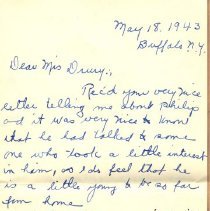 May 18, 1943
Buffalo N.Y.
Dear Mrs Drury:,
Rec'd your very nice
letter telling me about philip
and it was very nice to know
that he had talked to some
one who took a little interest
in him, as I do feel that he
is a little young to be so far
from home